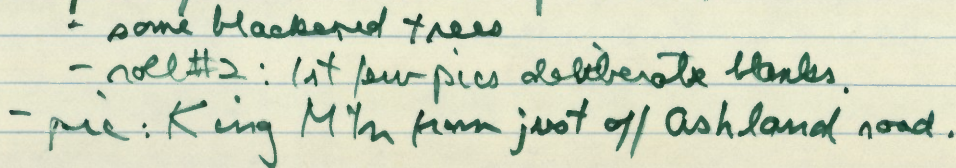 - some blackened trees
- roll #2: 1st few pics deliberate blanks.
- pic: King M'tn from just off Ashland road.